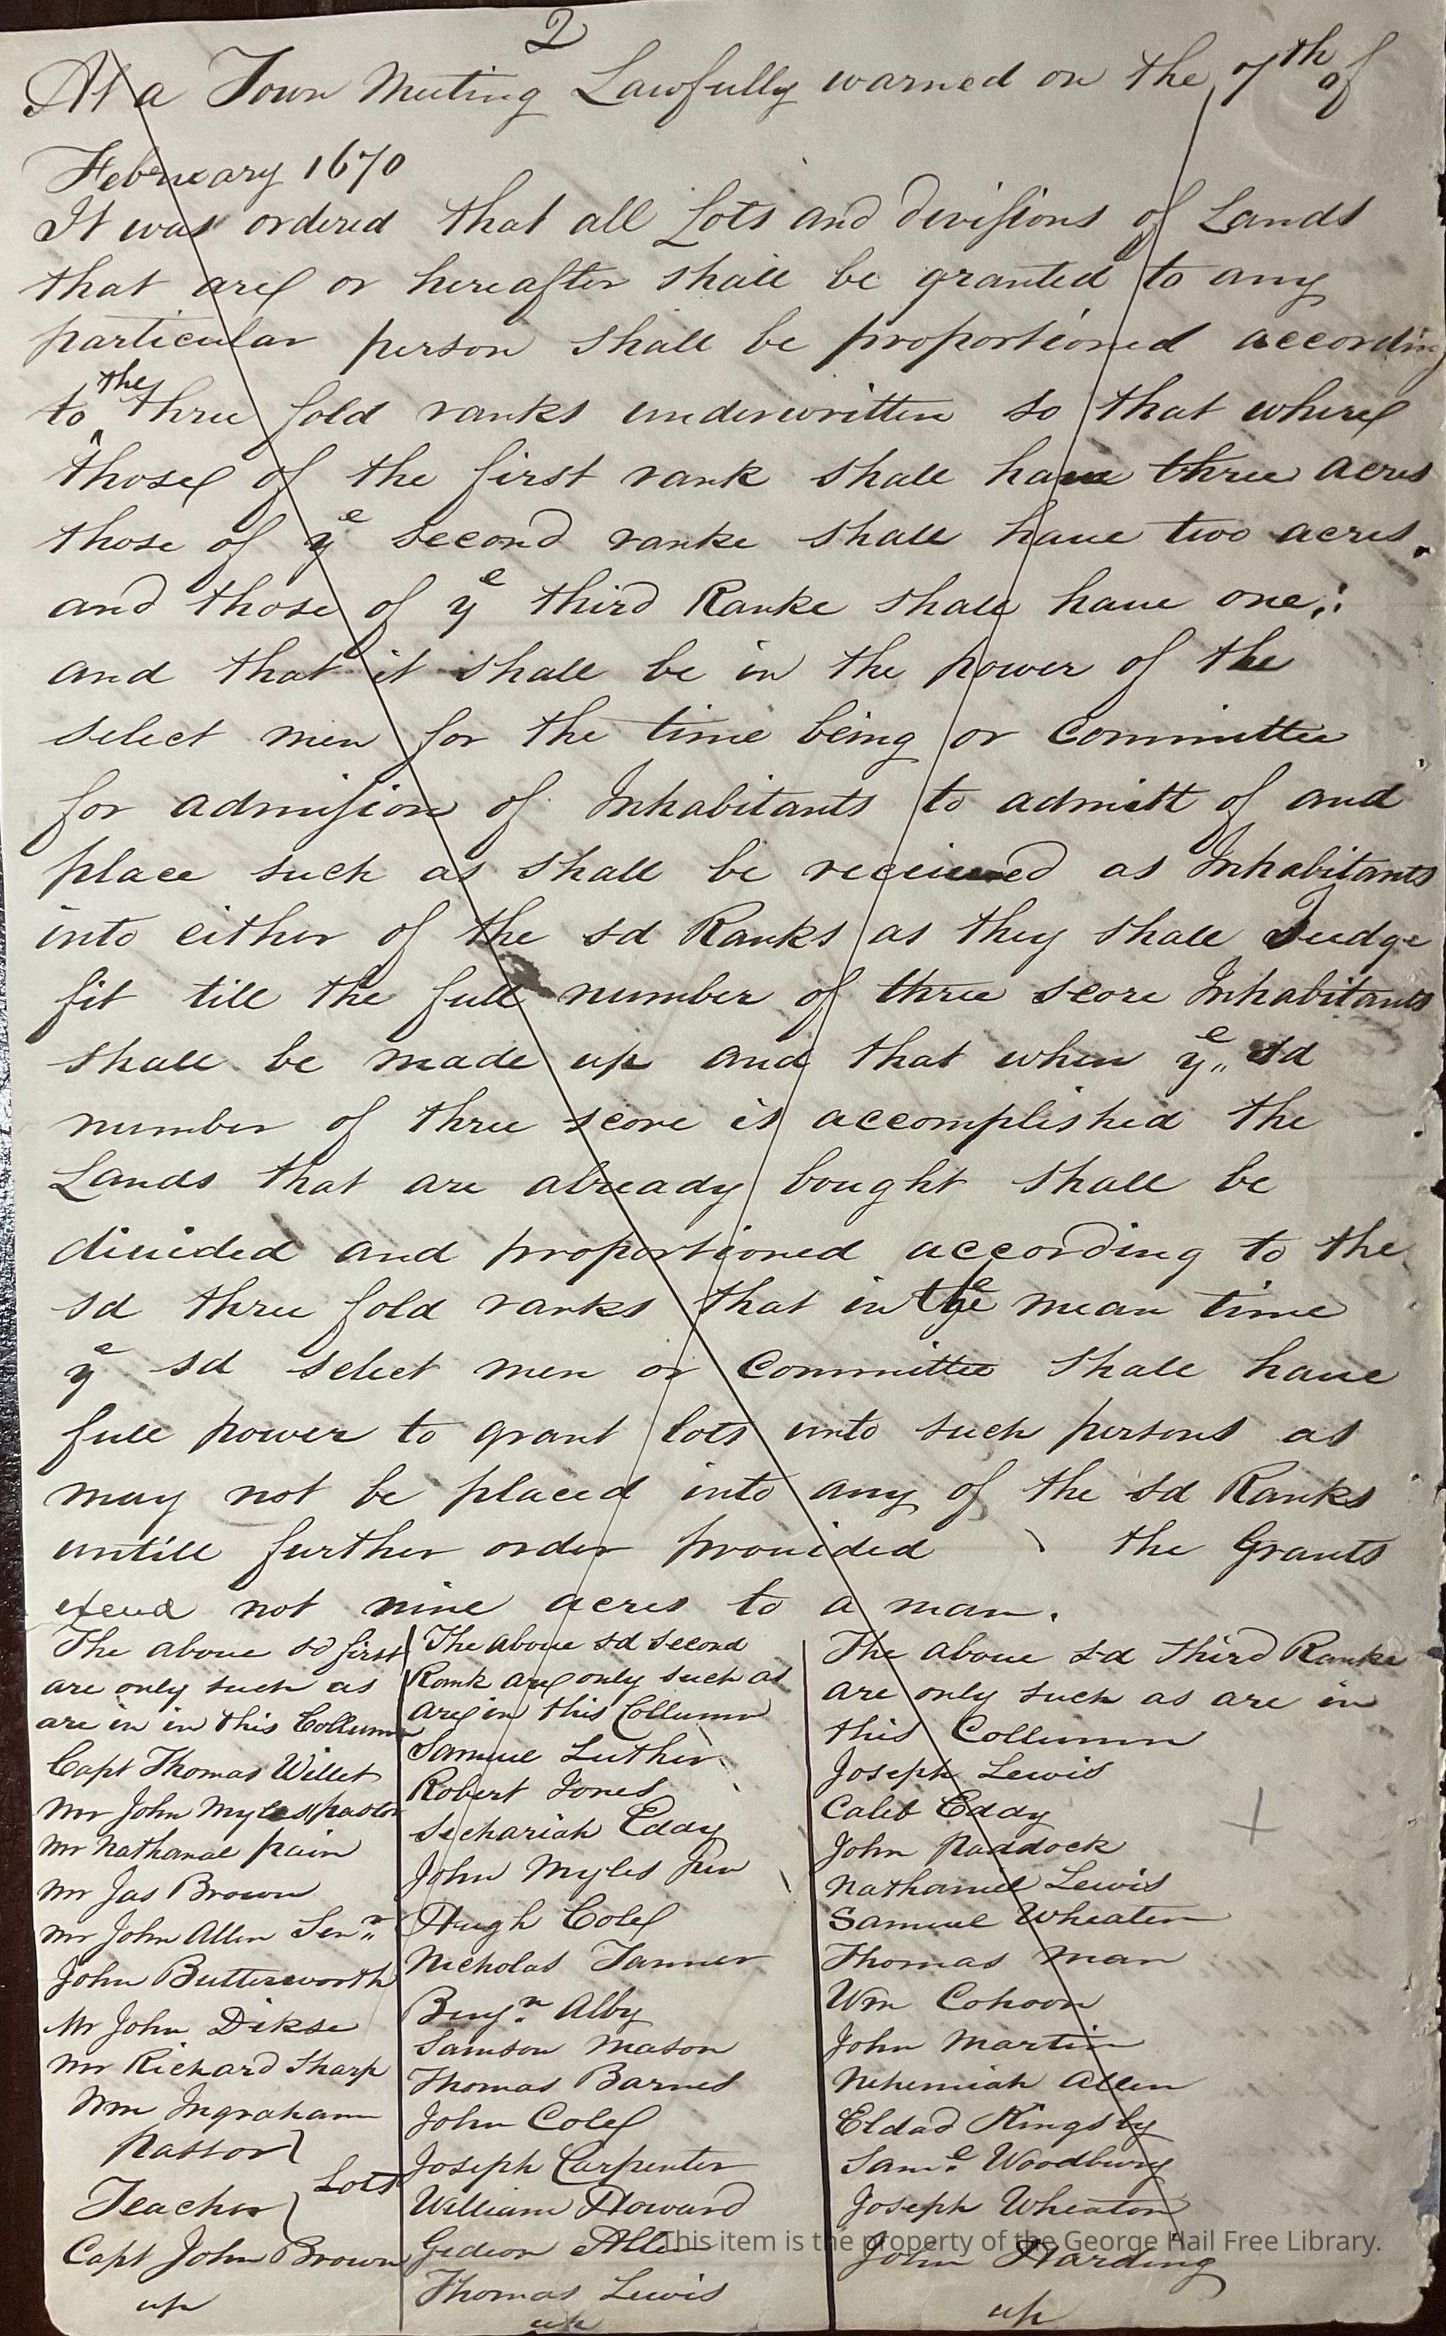 2
At a Town Meeting Lawfully warned on the 7th of
February 1670
It was ordered that all Lots and divisions of Lands
that are or hereafter shall be granted to any
particular person shall be proportioned according
to the three fold ranks underwritten so that where
those of the first rank shall have three acres
those of ye second ranke shall haue two acres.
and those of ye third Ranke shall haue one;
and that it shall be in the power of the
select men for the time being or Committee
for admission of Inhabitants to admitt of and
place such as shall be receiued as Inhabitants
into either of the sd Ranks as they shall Judge
fit till the full number of three score Inhabitants
shall be made up and that when ye sd
number of three score is accomplished the
Lands that are already bought shall be
diuided and proportioned according to the
sd three fold ranks that in the mean time
ye sd select men or Committee shall haue
full power to grant lots unto such persons as
may not be placed into any of the sd Ranks
untill further order prouided the Grants
exeed not nine acres to a man.
The aboue sd first
are only such as
are in in this Collumn
Capt Thomas Willet
Mr John Myles pastor
Mr Nathanael pain
Mr Jas Brown
Mr John Allen Senr
John Butterworth
Mr John Dikse
Mr Richard Sharp
Wm Ingraham
Pastor }
Lots
Teacher }
Capt John Brown
up
The aboue sd second
Rank are only such as
are in this Collumn
Samuel Luther
Robert Jones
Sechariah Eddy
John Myles Jun
Hugh Cole
Nicholas Tanner
Benjn Alby
Samson Mason
Thomas Barnes
John Cole
Joseph Carpenter
William Howard
Gideon Allen
Thomas Lewis
up
The aboue sd third Ranke
are only such as are in
this Collumn
Joseph Lewis
Caleb Eddy
John Paddock
Nathaniel Lewis
Samuel Wheaten
Thomas Man
Wm Cohoon
John Martin
Nehemiah Allen
Eldad Kingsby
Same Woodbury
Joseph Wheaton
John Harding
up
This item is the property of the George Hail Free Library.